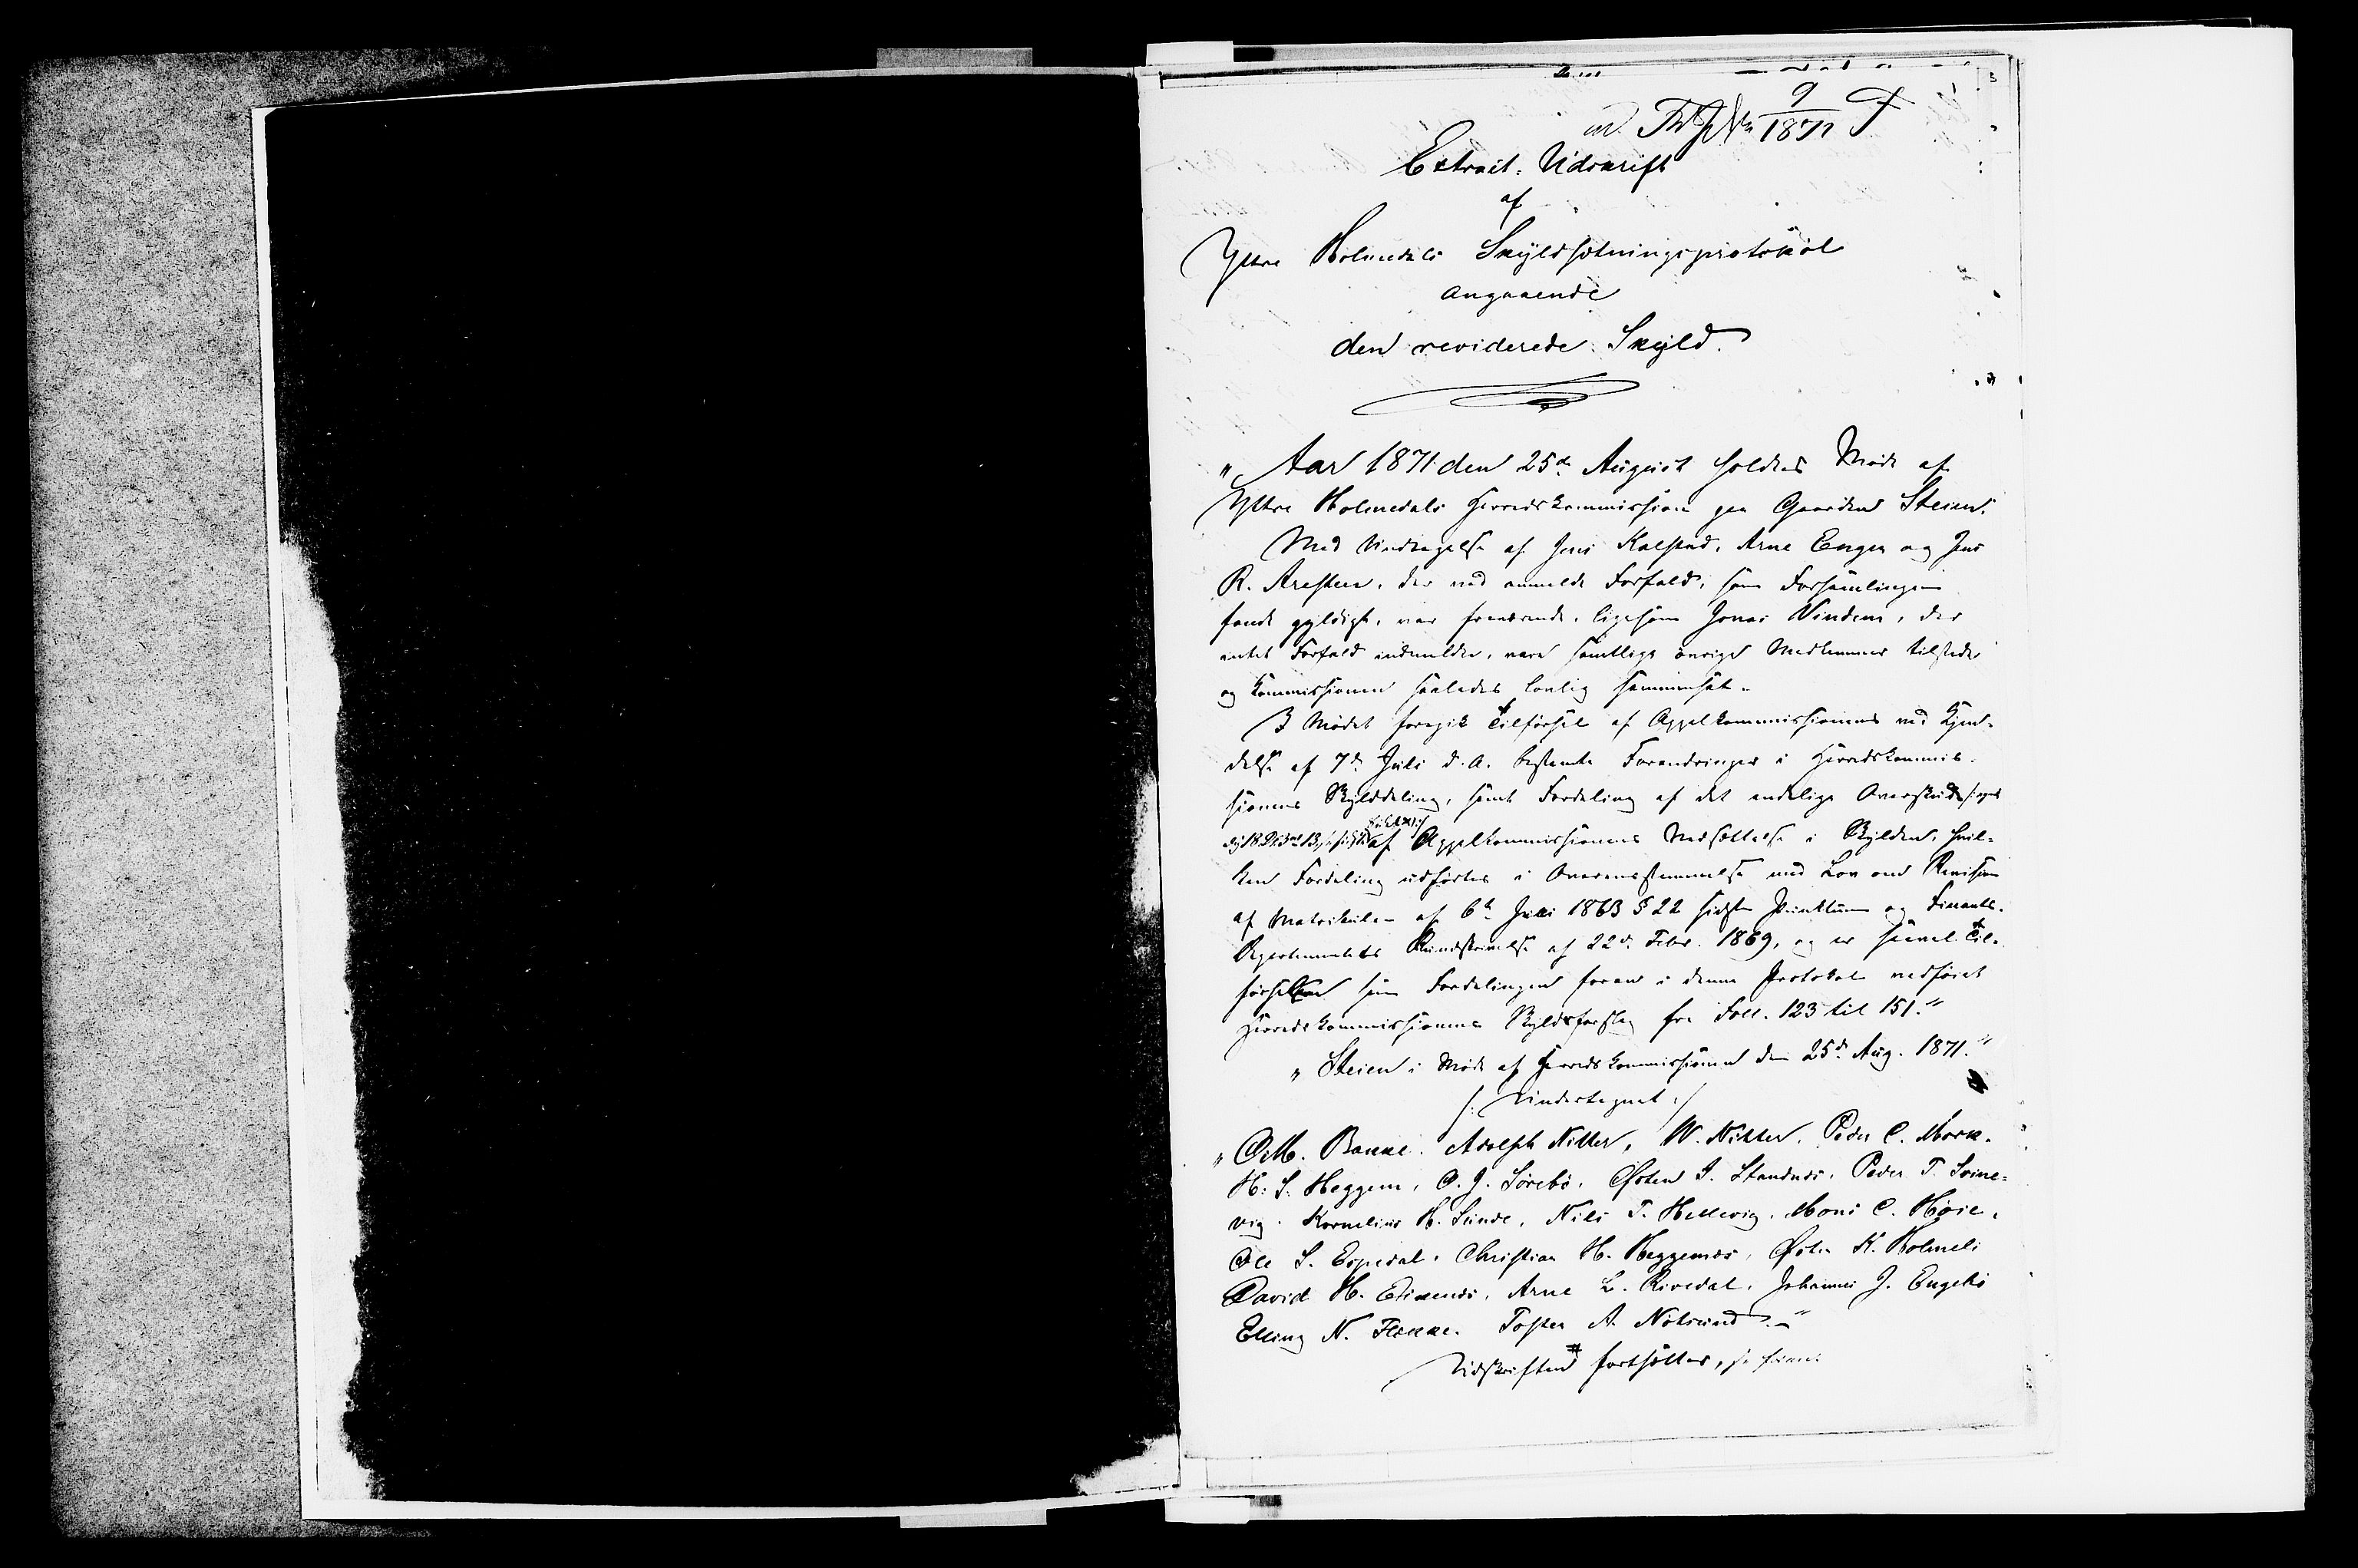 9
1871
Extract-Udskrift
af
Yttre Holmedals Skyldsætningsprotokol
angaaende
den reviderede Skyld.
"Aar 1871 den 25de August holdtes Møde af
Yttre Holmedals Herredskommission paa Gaarden Steien.
Med Undtagelse af Jens Kalstad, Arne Enger og Jens
R. Aresteen, der ved anmeldt Forfald, som Forsamlingen
fandt gyldigt, var fraværende, ligesom Jonas Vindem, der
intet Forfald indmeldte, vare samtlige øvrige Medlemmer tilstede
og Kommissionen saaledes lovlig sammensat.
I Mødet foregik Tilførsel af Appelkommissionens ved Kjen-
delse af 7de Juli d. A. bestemte Forandringer i Herredskommis-
sionens Skylddeling, samt Fordeling af det endelige Overskud
af Appelkommissionens Nedsættelse i Skylden, hvil-
ken Fordeling udførtes i Overensstemmelse med Lov om Revision
af Matrikulen af 6te Juni 1863 § 22 sidste Punktum og Finants-
Departementets Rundskrivelse af 22de Febr. 1869, og er saavel Til-
førselen som Fordelingen foran i denne Protokol vedføiet
Herredskommissionens Skyldforslag fra Foll. 123 til 151."
"Steien i Møde af Herredskommissionen den 25de Aug. 1871."
/: Undertegnet :/
" O. M. Bakke. Adolph Nitter, W. Nitter. Peder C. Mork.
H. S. Heggem, O. J. Sørebø. Østen I. Standnæs. Peder T. Svine-
vig. Kornelius H. Sunde, Nils T. Hellevig. Mons C. Høie,
Ole S. Espedal. Christian H. Heggenæs, Østen K. Holmeli
David H. Eikenæs, Arne L. Rivedal, Johannes J. Engebø
Elling N. Flekke. Tosten A. Nøtsund."
Udskriften fortsættes,